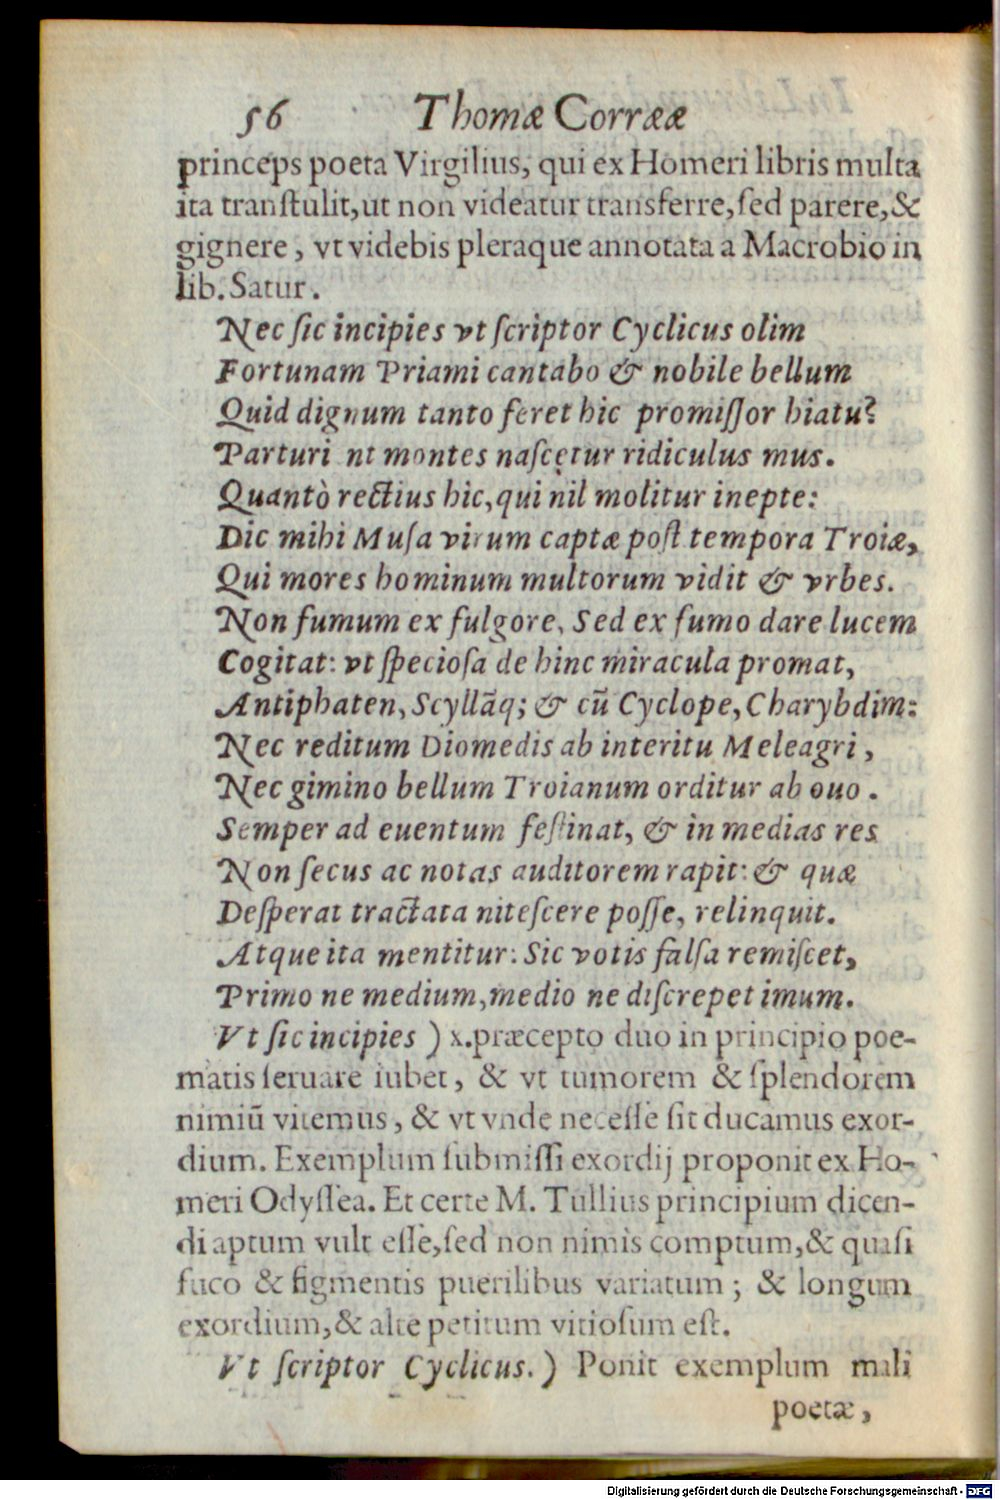 56 Thomæ Corrææ
princeps poeta Virgilius, qui ex Homeri libris multa
ita tranſtulit, ut non videatur transferre, ſed parere, &
gignere, vt videbis pleraque annotata a Macrobio in
lib. Satur.
Nec ſic incipies vt ſcriptor Cyclicus olim
Fortunam Priami cantabo & nobile bellum
Quid dignum tanto feret hic promiſſor hiatu?
Parturi nt montes naſcętur ridiculus mus.
Quantò rectius hic, qui nil molitur inepte:
Dic mihi Muſa virum captæ poſt tempora Troiæ,
Qui mores hominum multorum vidit & vrbes.
Non fumum ex fulgore, Sed ex fumo dare lucem
Cogitat: vt ſpecioſa de hinc miracula promat,
Antiphaten, Scyllãq; & cũ Cyclope, Charybdim:
Nec reditum Diomedis ab interitu Meleagri,
Nec gimino bellum Troianum orditur ab ouo.
Semper ad euentum feſtinat, & in medias res
Non ſecus ac notas auditorem rapit: & quæ
Deſperat tractata niteſcere poſſe, relinquit.
Atque ita mentitur: Sic votis falſa remiſcet,
Primo ne medium, medio ne diſcrepet imum.
Vt ſic incipies ) x. præcepto duo in principio poe-
matis ſeruare iubet, & vt tumorem & ſplendorem
nimiũ vitemus, & vt vnde neceſſe ſit ducamus exor-
dium. Exemplum ſubmiſſi exordij proponit ex Ho-
meri Odyſſea. Et certe M. Tullius principium dicen-
di aptum vult eſſe, ſed non nimis comptum, & quaſi
fuco & figmentis puerilibus variatum; & longum
exordium, & alte petitum vitioſum eſt.
Vt ſcriptor Cyclicus.) Ponit exemplum mali
poetæ,
Digitalisierung gefördert durch die Deutsche Forschungsgemeinschaft - DFG